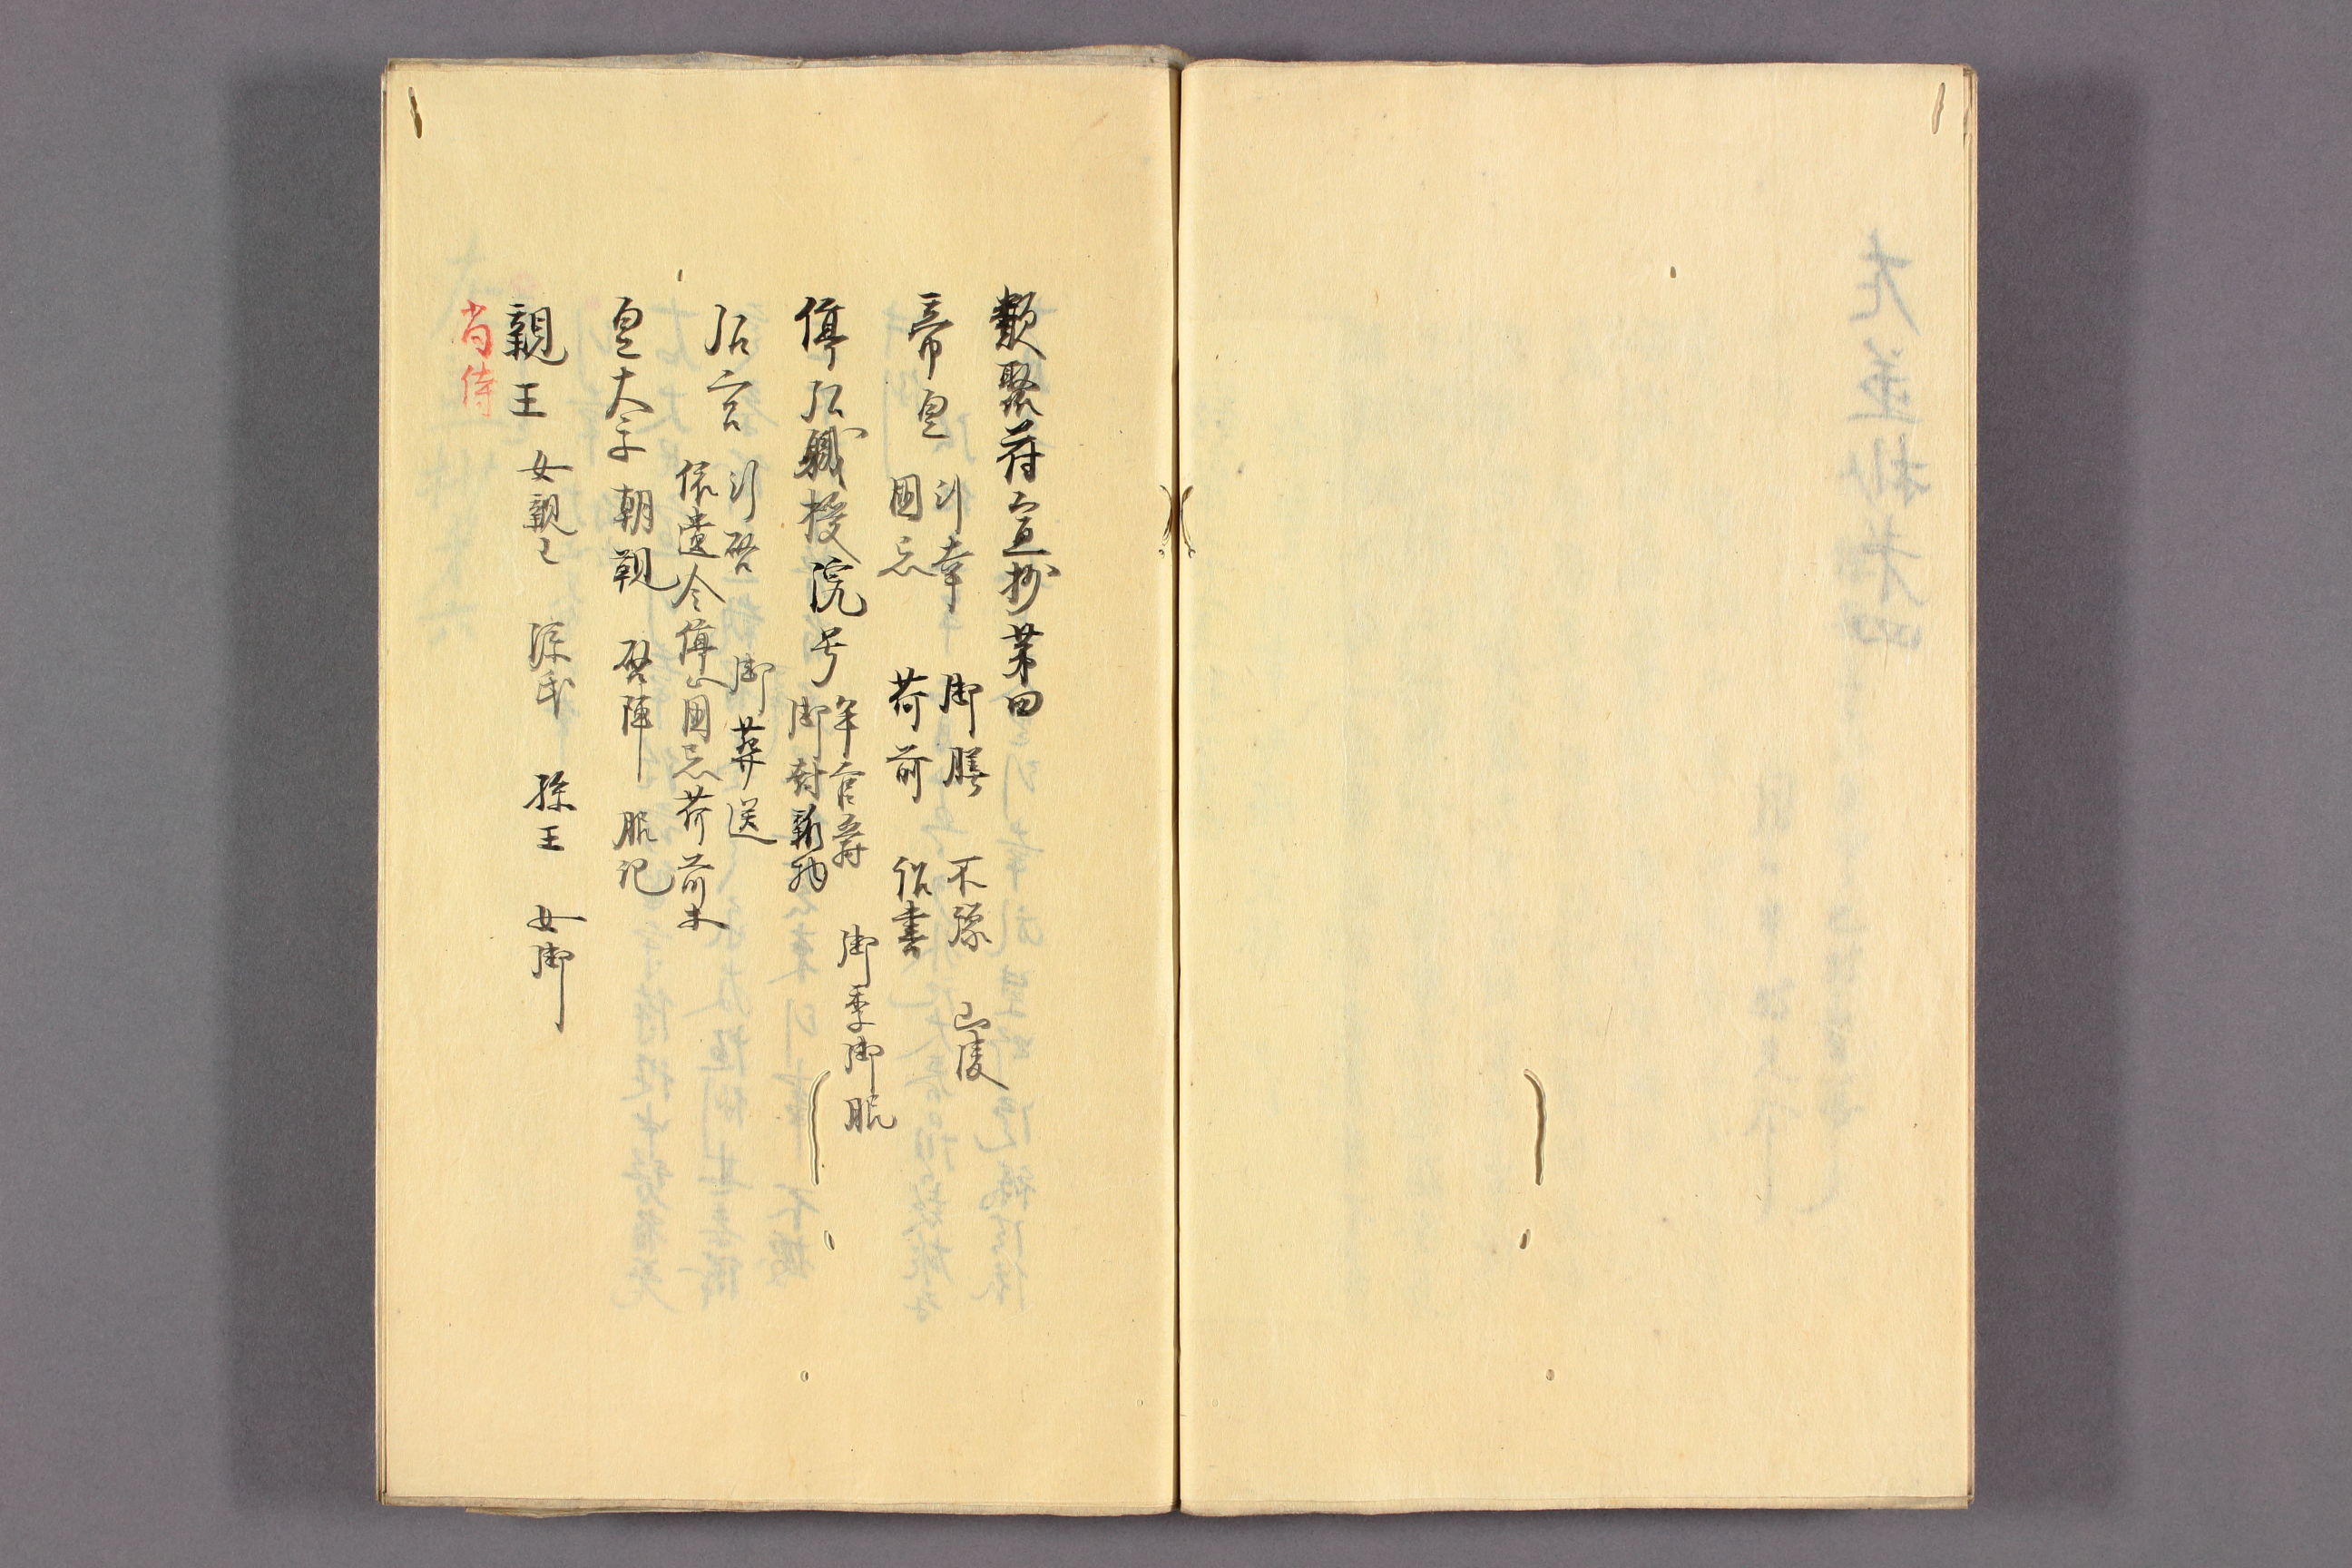 類聚符宣抄第四
帝皇
行幸 御膳 不豫 山陵
國忌 荷前 詔書
停后職授院号
年官爵 御季御服
御封雜物
后宮
行啓 御葬送
依遺令停山國忌荷前末
皇太子 朝覲 啓陣 服記
親王 女親王 源氏 孫王 女御
尚侍